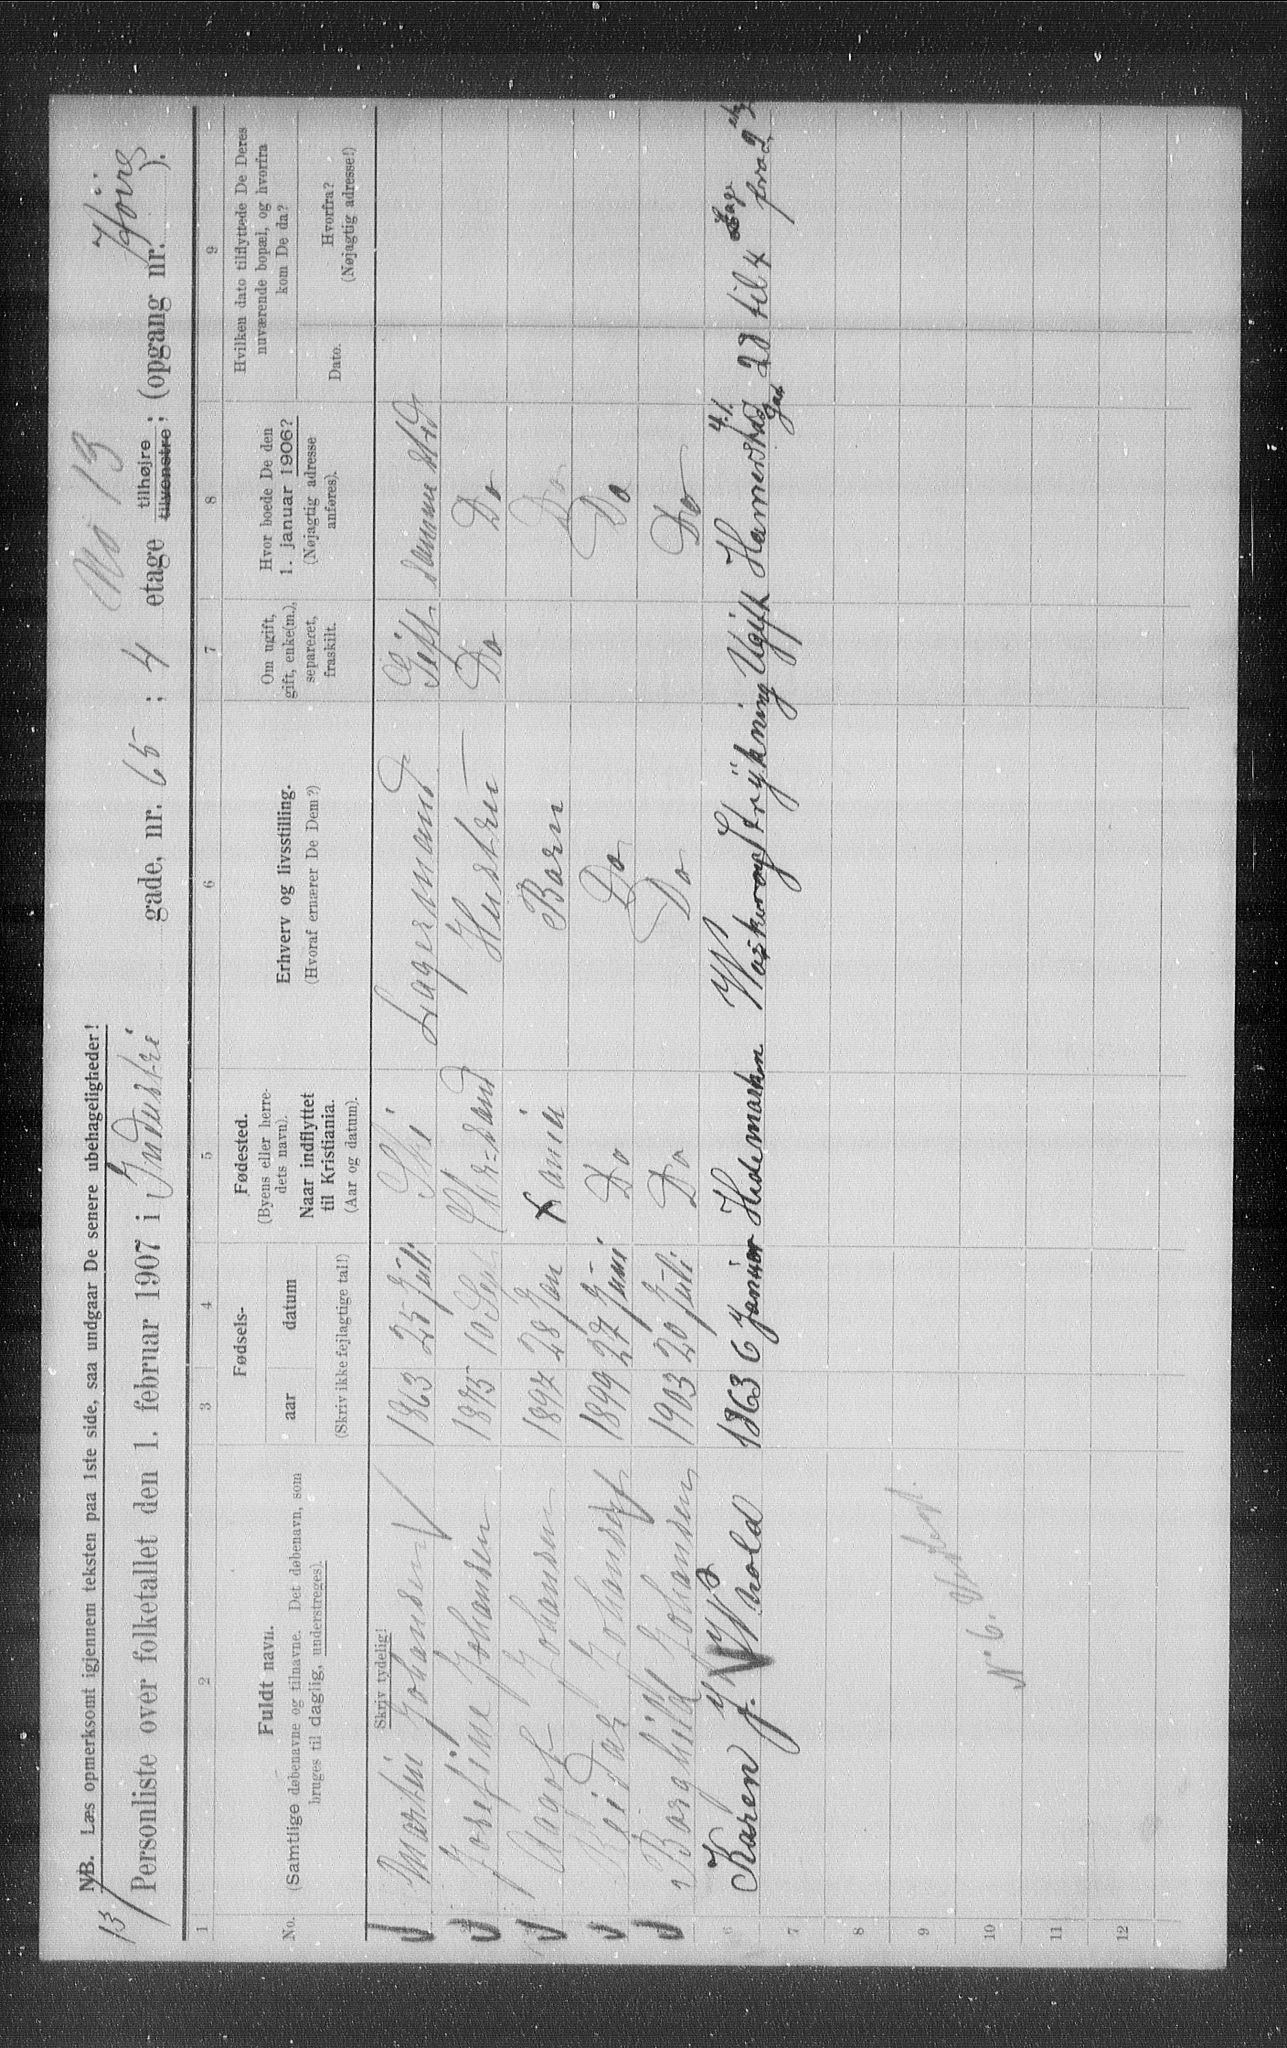 NB. Læs opmerksomt igjennem teksten paa 1ste side, saa undgaar De senere ubehageligheder!
No 13
13/
Personliste over folketallet den 1. februar 1907 i Industri gade, nr. 65 ; 4 etage tilhøjre tilvenstre ; (opgang nr. ).
1 2 3 4 5 6 7 8 9
No.
Fuldt navn.
(Samtlige døbenavne og tilnavne. Det døbenavn, som
bruges til daglig, understreges).
Fødsels-
aar datum
(Skriv ikke fejlagtige tal!)
Fødested.
(Byens eller herre-
dets navn).
Naar indflyttet
til Kristiania.
(Aar og datum).
Erhverv og livsstilling.
(Hvoraf ernærer De Dem?)
Om ugift,
gift, enke(m.),
separeret,
fraskilt.
Hvor boede De den
1. januar 1906?
(Nøjagtig adresse
anføres).
Hvilken dato tilflyttede De Deres
nuværende bopæl, og hvorfra
kom De da?
Dato.
Hvorfra?
(Nøjagtig adresse!)
Skriv tydelig!
Martin Johansen 1863 25 Juli Ski Lagermand Gift samme sted
Josefine Johansen 1875 10 Sep Chr-sand Hustru Do Do
Aagot Johansen 1897 28 Jan Kania Barn Do
Reidar Johansen 1899 27 Juni Do Do Do
Borghild Johansen 1903 20 Juli Do Do Do
6 Karen J. Wold 1863 6 Januar Hedemarken Waskerog Strykning Ugift Hamerstad Gad 41. 2d til 4 fra 2
7
8
9
10 No 6.
11
12